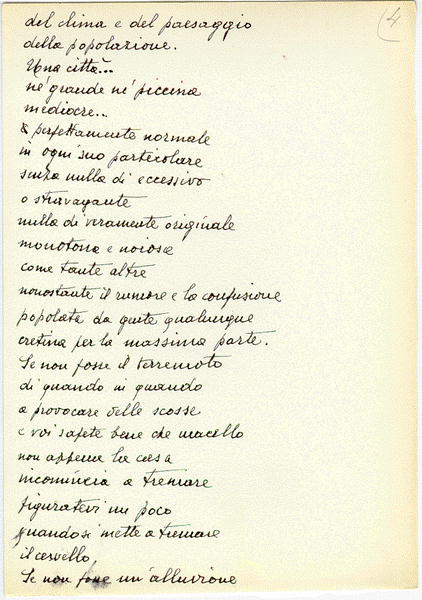 4
del clima e del paesaggio
della popolazione.
Una città...
né grande né piccina
mediocre...
perfettamente normale
in ogni suo particolare
senza nulla di eccessivo
o stravagante
nulla di veramente originale
monotona e noiosa
come tante altre
nonostante il rumore e la confusione
popolata da gente qualunque
cretina per la massima parte.
Se non fosse il terremoto
di quando in quando
a provocare delle scosse
e voi sapete bene che macello
non appena la casa
incomincia a tremare
figuratevi un poco
quando si mette a tremare
il cervello
Se non fosse un'alluvione